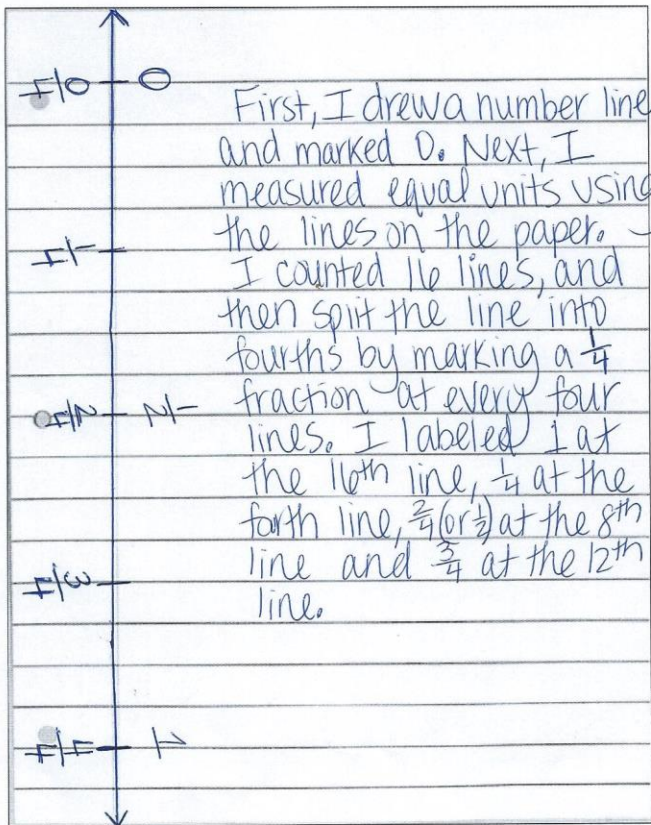 0/4 0
1/4
2/4 1/2
3/4
4/4 1
First, I drew a number line
and marked 0. Next, I
measured equal units using
the lines on the paper.
I counted 16 lines, and
then split the line into
fourths by marking a 1/4
fraction at every four
lines. I labeled 1 at
the 16th line, 1/4 at the
forth line, 2/4 (or 1/2) at the 8th
line and 3/4 at the 12th
line.